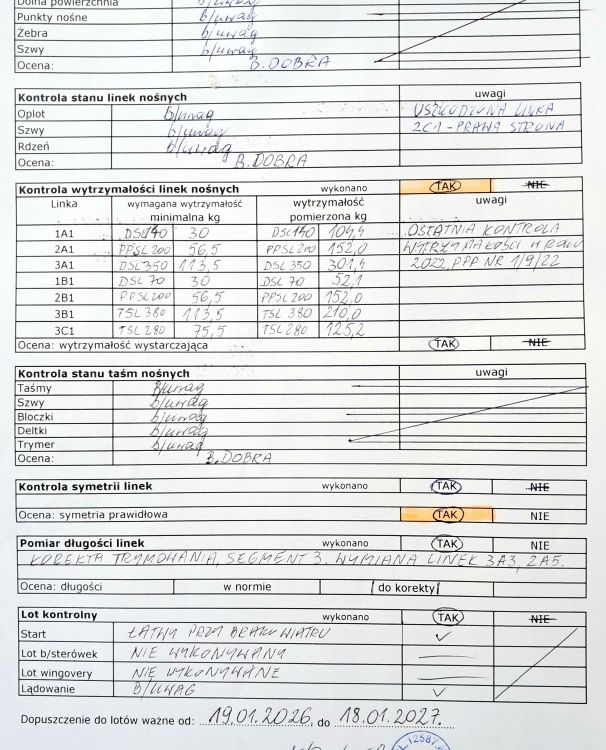 Dolna powierzchnia b/uwag
Punkty nośne b/uwag
Żebra b/uwag
Szwy b/uwag
Ocena: B. DOBRA
Kontrola stanu linek nośnych uwagi
Oplot b/uwag USZKODZONA LINKA
Szwy b/uwag 2C1 - PRAWA STRONA
Rdzeń b/uwag
Ocena: B. DOBRA
Kontrola wytrzymałości linek nośnych wykonano TAK NIE
Linka wymagana wytrzymałość wytrzymałość uwagi
minimalna kg pomierzona kg
1A1 DSL140 30 DSL140 104,4 OSTATNIA KONTROLA
2A1 PPSL200 56,5 PPSL200 152,0 WYTRZYMAŁOŚCI W ROKU
3A1 DSL350 113,5 DSL350 301,4 2022, PPP NR 1/9/22
1B1 DSL70 30 DSL70 52,1
2B1 PPSL200 56,5 PPSL200 152,0
3B1 TSL380 113,5 TSL380 210,0
3C1 TSL280 75,5 TSL280 125,2
Ocena: wytrzymałość wystarczająca TAK NIE
Kontrola stanu taśm nośnych uwagi
Taśmy b/uwag
Szwy b/uwag
Bloczki b/uwag
Deltki b/uwag
Trymer b/uwag
Ocena: B. DOBRA
Kontrola symetrii linek wykonano TAK NIE
Ocena: symetria prawidłowa TAK NIE
Pomiar długości linek wykonano TAK NIE
KOREKTA TRYMOWANIA, SEGMENT 3. WYMIANA LINEK 3A3, 2A5.
Ocena: długości w normie do korekty
Lot kontrolny wykonano TAK NIE
Start ŁATWY PRZY BRAKU WIATRU
Lot b/sterówek NIE WYKONYWANY
Lot wingovery NIE WYKONYWANE
Lądowanie B/UWAG
Dopuszczenie do lotów ważne od: 19.01.2026, do 18.01.2027.